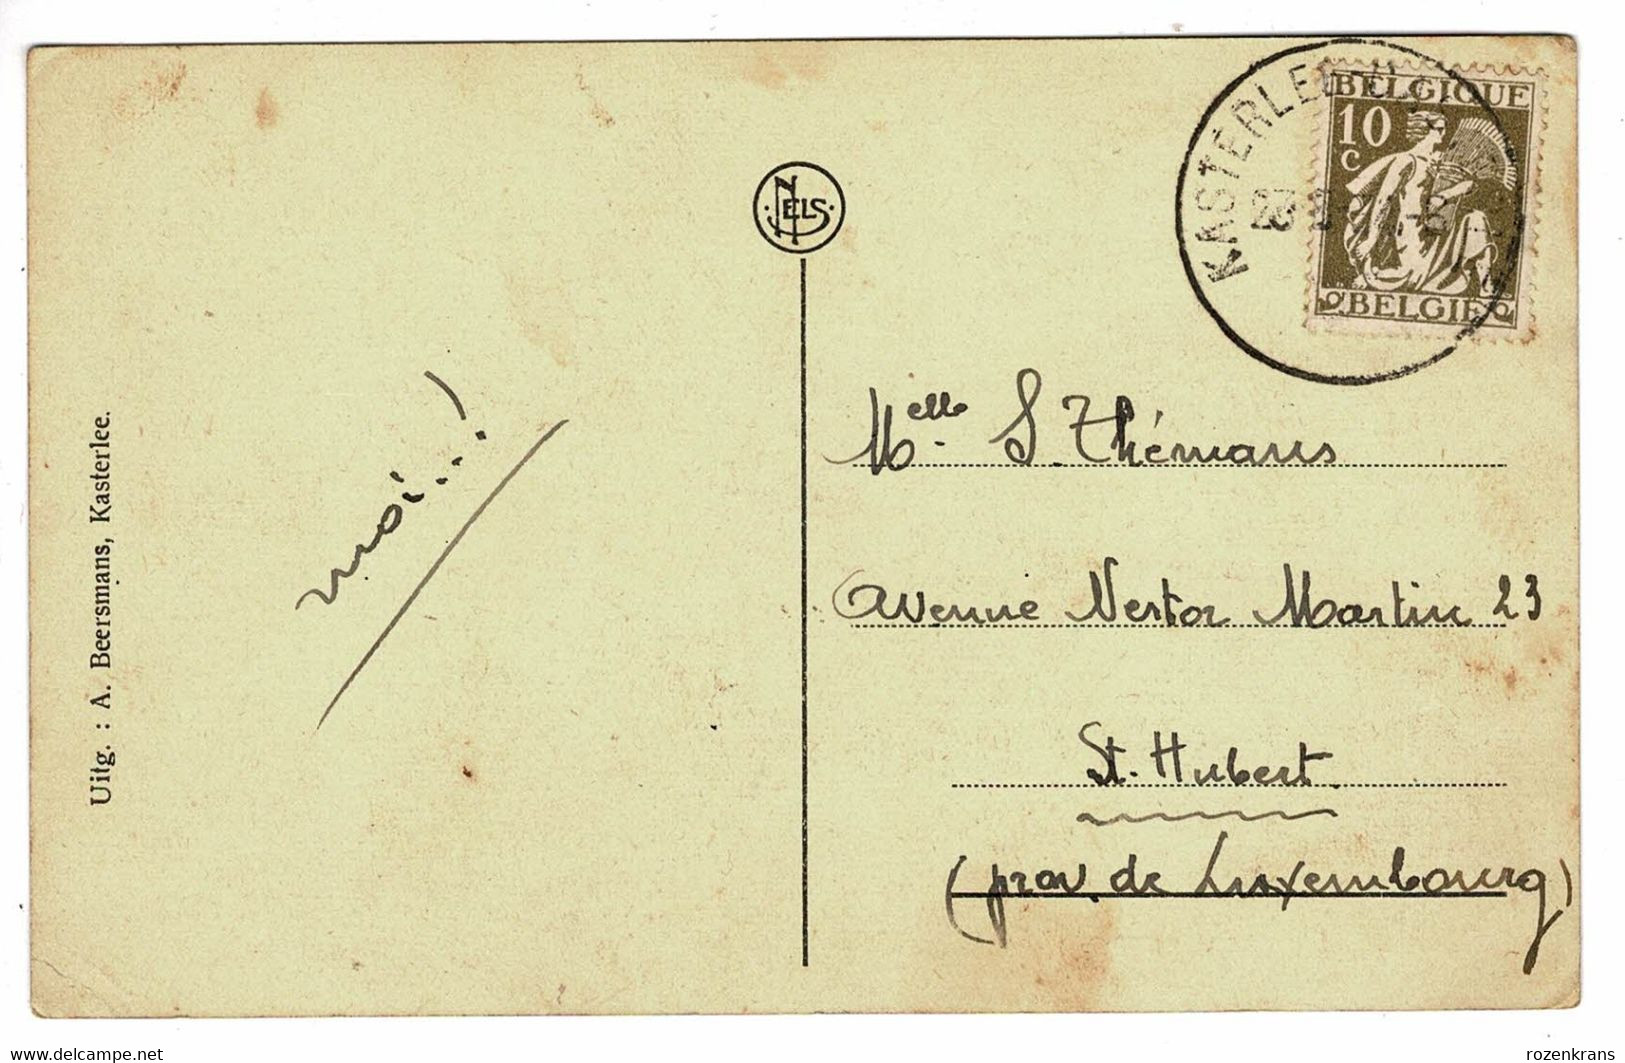 Uitg. : A. Beersmans, Kasterlee.
moi...!
NELS
KASTERLEE
BELGIQUE
10
C
BELGIE
Melle. S. Thémans
Avenue Nestor Martin 23
St. Hubert
(prov de Luxembourg)
www.delcampe.net
rozenkrans